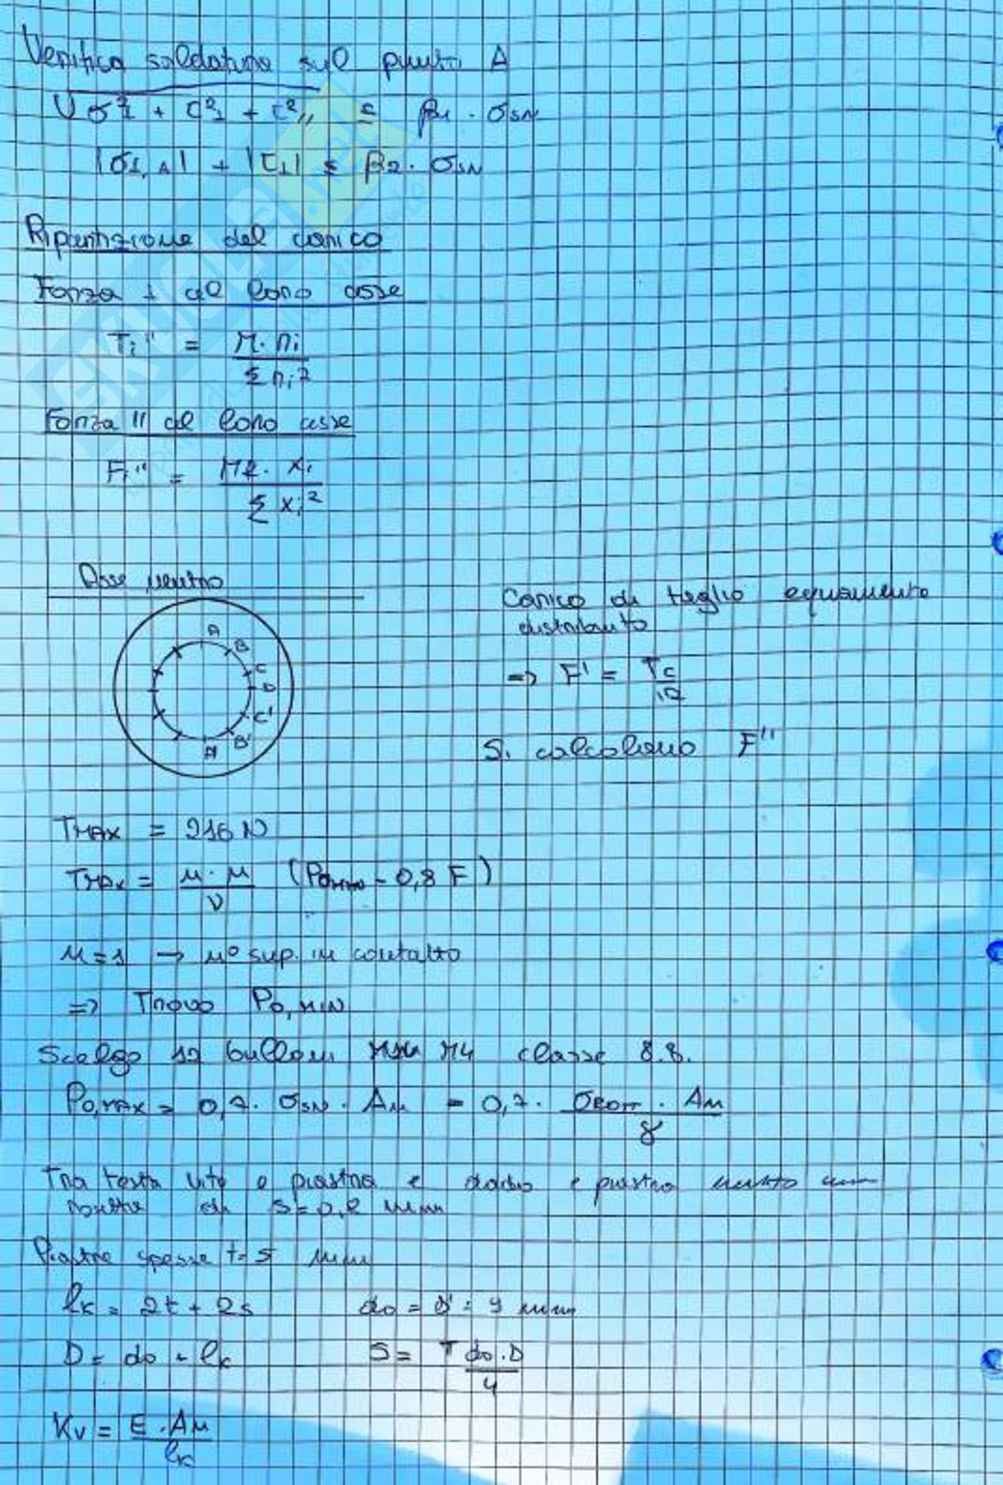 Verifica soldatura sul punto A
√σ²⊥ + τ²⊥ + τ²// ≤ β1 · σSN
|σ⊥,A| + |τ⊥| ≤ β2 · σSN
Ripartizione del carico
Forza ⊥ al loro asse
Ti'' = M · ri
Σ ri²
Forza // al loro asse
Fi'' = M2 · xi
Σ xi²
Asse neutro
A
B
C
D
C'
B'
A'
Carico di taglio equamente
distribuito
=> F' = Tc
12
Si calcolano F''
TMAX = 216 N
TMAX = μ · M (P0,min - 0,8 F)
ν
M = 1 → n° sup. in contatto
=> Trovo P0,MIN
Scelgo 12 bulloni M4 classe 8.8.
P0,MAX = 0,7 · σSN · An = 0,7 · · An
γ
Tra testa vite e piastra e dado e piastra metto una
di s = 0,2 mm
Piastre spesse t = 5 mm
lk = 2t + 2s
d0 = d' = 9 mm
D = d0 + lk
S = π d0 · D
4
Kv = E · An
lk